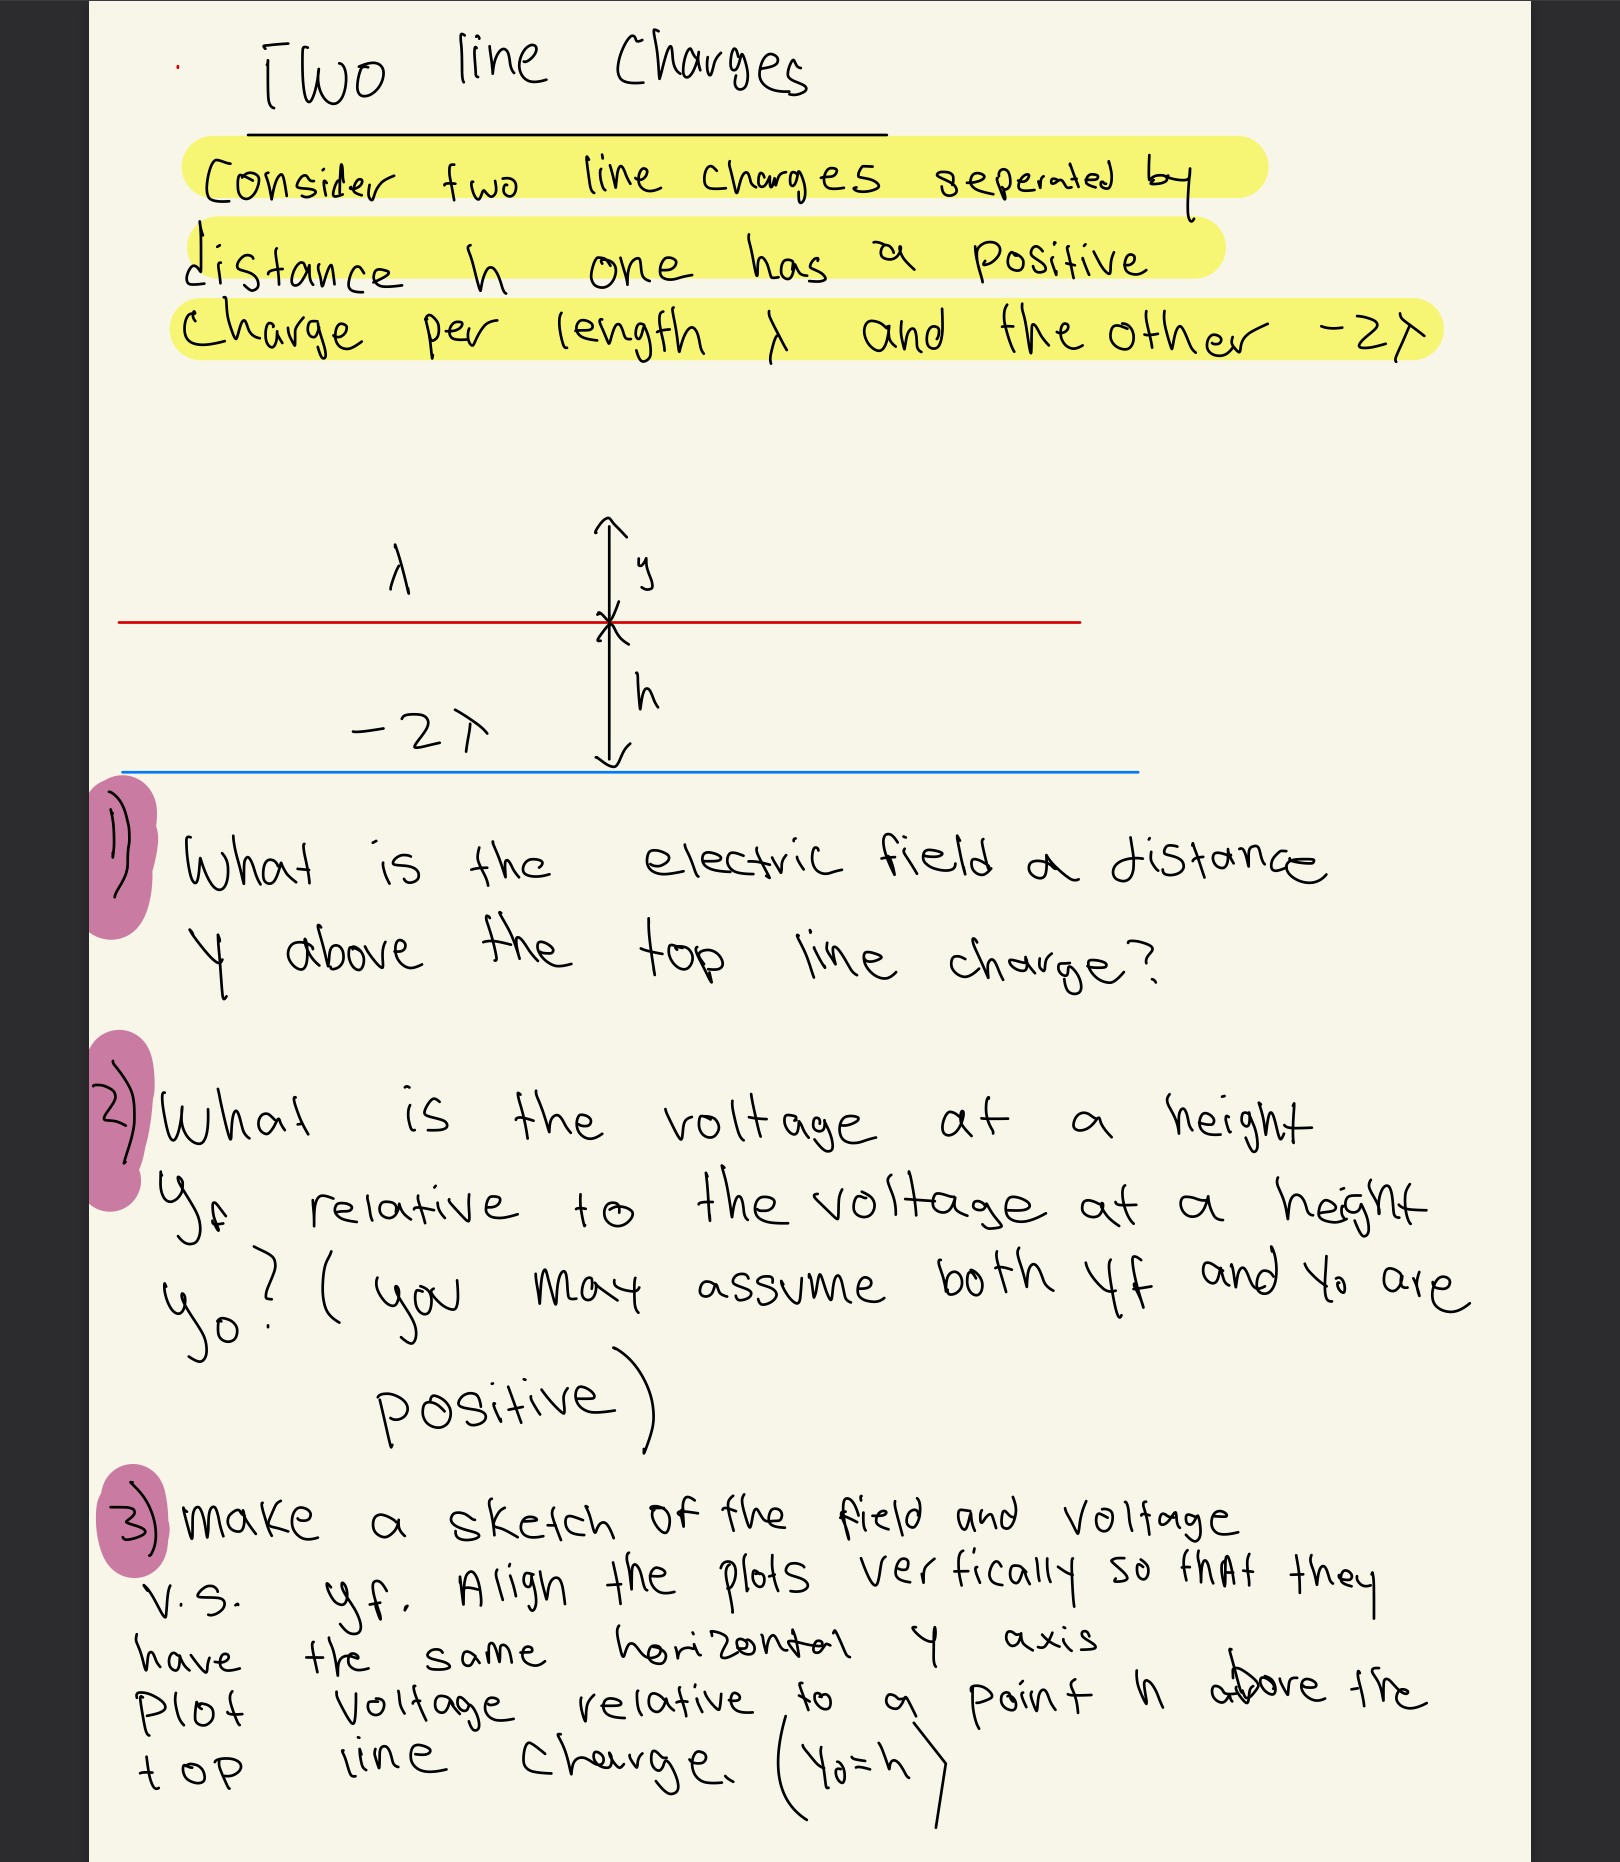 Two line Charges
Consider two line charges seperated by
distance h one has a positive
Charge per length λ and the other -2λ
λ
y
h
-2λ
1) What is the electric field a distance
y above the top line charge?
2) What is the voltage at a height
yf relative to the voltage at a height
yo? (you may assume both yf and yo are
positive)
3) make a sketch of the field and voltage
v.s. yf. Align the plots vertically so that they
have the same horizontal y axis
Plot voltage relative to a point h above the
top line charge. (yo=h)